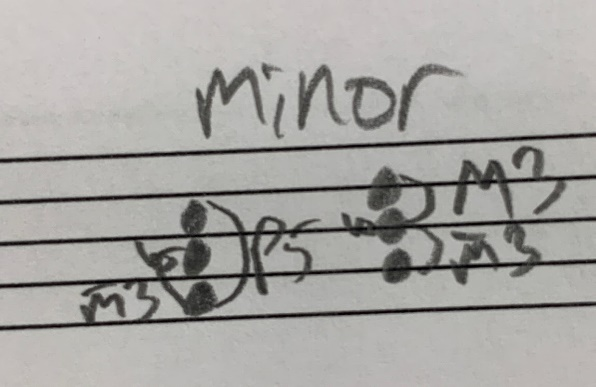 minor
M3
♭ P5 ♭ m3
m3